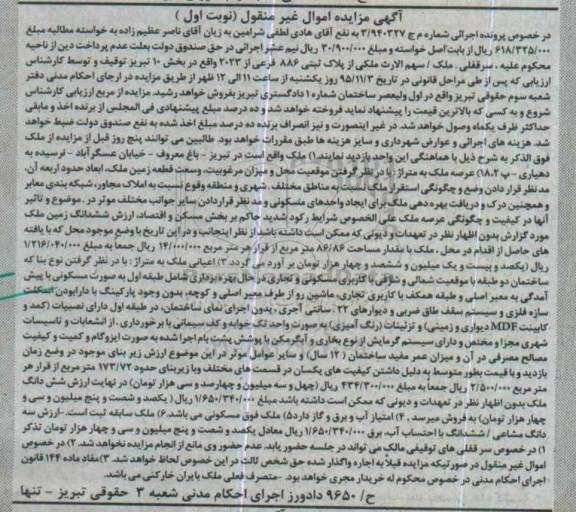 آگهی مزایده اموال غیر منقول (نوبت اول )
در خصوص پرونده اجرائی شماره م ج ۳/۹۴۰۳۲۷ به نفع آقای هادی لطفی شرامین به زیان آقای ناصر عظیم زاده به خواسته مطالبه مبلغ
۶۱۸/۳۲۵/۰۰۰ ریال از بابت اصل خواسته و مبلغ ۳۰/۹۰۰/۰۰۰ ریال نیم عشر اجرائی در حق صندوق دولت بعلت عدم پرداخت دین از ناحیه
محکوم علیه ، سرقفلی . ملک / سهم الارث ملکی از پلاک ثبتی ۸۸۶ فرعی از ۲۰۲۳ واقع در بخش ۱۰ تبریز توقیف و توسط کارشناس
ارزیابی که پس از طی مراحل قانونی در تاریخ ۹۵/۱۱/۳ روز یکشنبه از ساعت ۱۱ الی ۱۲ ظهر از طریق مزایده در اجرای احکام مدنی دفتر
شعبه سوم حقوقی تبریز واقع در اول ولیعصر ساختمان شماره ۱ دادگستری تبریز بفروش خواهد رسید. مزایده از مبلغ ارزیابی کارشناس
شروع و به کسی که بالاترین قیمت را پیشنهاد نماید فروخته خواهد شد و ده درصد مبلغ پیشنهادی فی المجلس از برنده اخذ و مابقی
حداکثر ظرف یکماه وصول خواهد شد. در غیر اینصورت و نیز انصراف برنده ده درصد مبلغ اخذ شده به نفع صندوق دولت ضبط خواهد
شد. هزینه های اجرائی و عوارض شهرداری و سایر هزینه ها طبق مقررات خواهد بود. طالبین می توانند پنج روز قبل از مزایده از ملک
فوق الذکر به شرح ذیل با هماهنگی این واحد بازدید نمایند.۱) ملک واقع است در تبریز - باغ معروف - خیابان عسگرآباد - نرسیده به
دهیاری - پ ۱۸.۲) عرصه ملک به متراژ : با در نظر گرفتن موقعیت محل و میزان مرغوبیت، وسعت قطعه زمین ملک، ابعاد حدود اربعه آن.
مد نظر قرار دادن وضع و چگونگی استقرار ملک نسبت به مناطق مختلف . شهری و منطقه وقوع نسبت به املاک مجاور، شبکه بندی معابر
و همچنین درک و دریافت بهره دهی ملک برای ایجاد واحدهای مسکونی و مد نظر قراردادن سایر جوانب مختلف موثر در . موضوع و تاثیر
آنها در کیفیت و چگونگی عرصه ملک علی الخصوص شرایط رکود شدید حاکم بر بخش مسکن و اقتصاد، ارزش ششدانگ زمین ملک
مورد گزارش بدون اظهار نظر در تعهدات و دیونی که ممکن است داشته باشد از نظر اینجانب و در این تاریخ با وضع موجود محل که با یافته
های حاصل از اقدام در محل ، ملک با مقدار مساحت ۸۶/۸۶ متر مربع از قرار هر متر مربع ۱۴/۰۰۰/۰۰۰ ریال جمعا به مبلغ ۱/۲۱۶/۰۴۰/۰۰۰
ریال (یکصد و بیست و یک میلیون و ششصد و چهار هزار تومان بر آورد می گردد. ۳) اعیانی ملک به متراژ : با در نظر گرفتن نوع بنا که
ساختمان دو طبقه با موقعیت شمالی و شرقی با کاربری مسکونی و تجاری در حال بهره برداری شامل طبقه اول به صورت مسکونی با پیش
آمدگی به معبر اصلی و طبقه همکف با کاربری تجاری، ماشین رو از طرف معبر اصلی و کوچه، بدون وجود پارکینگ با دارا بودن اسکلت
سازه فلزی و سیستم سقف طاق ضربی و دیوارهای ۲۲ . سانتی آجری ، بدون اجرای نمای ساختمان، در طبقه اول دارای نصبیات (کمد و
کابینت MDF دیواری و زمینی) و تزئینات (رنگ آمیزی) به صورت واحد تک خوابه و کف سیمانی با برخورداری . از انشعابات و تاسیسات
شهری مجزا و مختص و دارای سیستم گرمایش از نوع بخاری و آبگرمکن با پوشش پشت بام اجرا شده به صورت ایزوگام و کمیت و کیفیت
مصالح مصرفی در آن و میزان عمر مفید ساختمان ( ۱۲ سال) و سایر عوامل موثر در این موضوع ارزش زیر بنای موجود در وضع زمان
بازدید و با قیمت بطور متوسط به دلیل داشتن کیفیت های یکسان در قسمت های مختلف وبا زیربنای حدود ۱۷۳/۷۲ متر مربع از قرار هر
متر مربع ۲/۵۰۰/۰۰۰ ریال جمعا به مبلغ ۴۳۴/۳۰۰/۰۰۰ ریال (چهل و سه میلیون و چهارصد و سی هزار تومان) در نهایت ارزش شش دانگ
ملک بدون اظهار نظر در تعهدات و دیونی که ممکن است داشته باشد مبلغ ۱/۶۵۰/۳۴۰/۰۰۰ ریال ( یکصد و شصت و پنج میلیون و سی و
چهار هزار تومان) به فروش میرسد . ۴) امتیاز آب و برق و گاز دارد۵) ملک فوق مسکونی می باشد. ۶) ملک سابقه ثبت است. -ارزش سه
دانگ مشاعی / ششدانگ با احتساب آب، برق ۱/۶۵۰/۳۴۰/۰۰۰ ریال معادل یکصد و شصت و پنج میلیون و سی و چهار هزار تومان تذکر
۱) در خصوص سر قفلی های توقیفی مالک می تواند در جلسه حضور یابد. عدم حضور وی مانع از انجام مزایده نخواهد شد. ۲) در خصوص
اموال غیر منقول در صورتیکه مزایده قبلا به اجاره واگذار شده حق شخص ثالث در این خصوص لحاظ خواهد شد. ۳) مفاد ماده ۱۴۴ قانون
اجرای احکام مدنی در خصوص محکوم له خریدار مجری خواهد بود. -متصرف فعلی ملک یا بران خارکنی می باشد.
ح/ ۹۶۵۰ دادورز اجرای احکام مدنی شعبه ۳ حقوقی تبریز - تنها